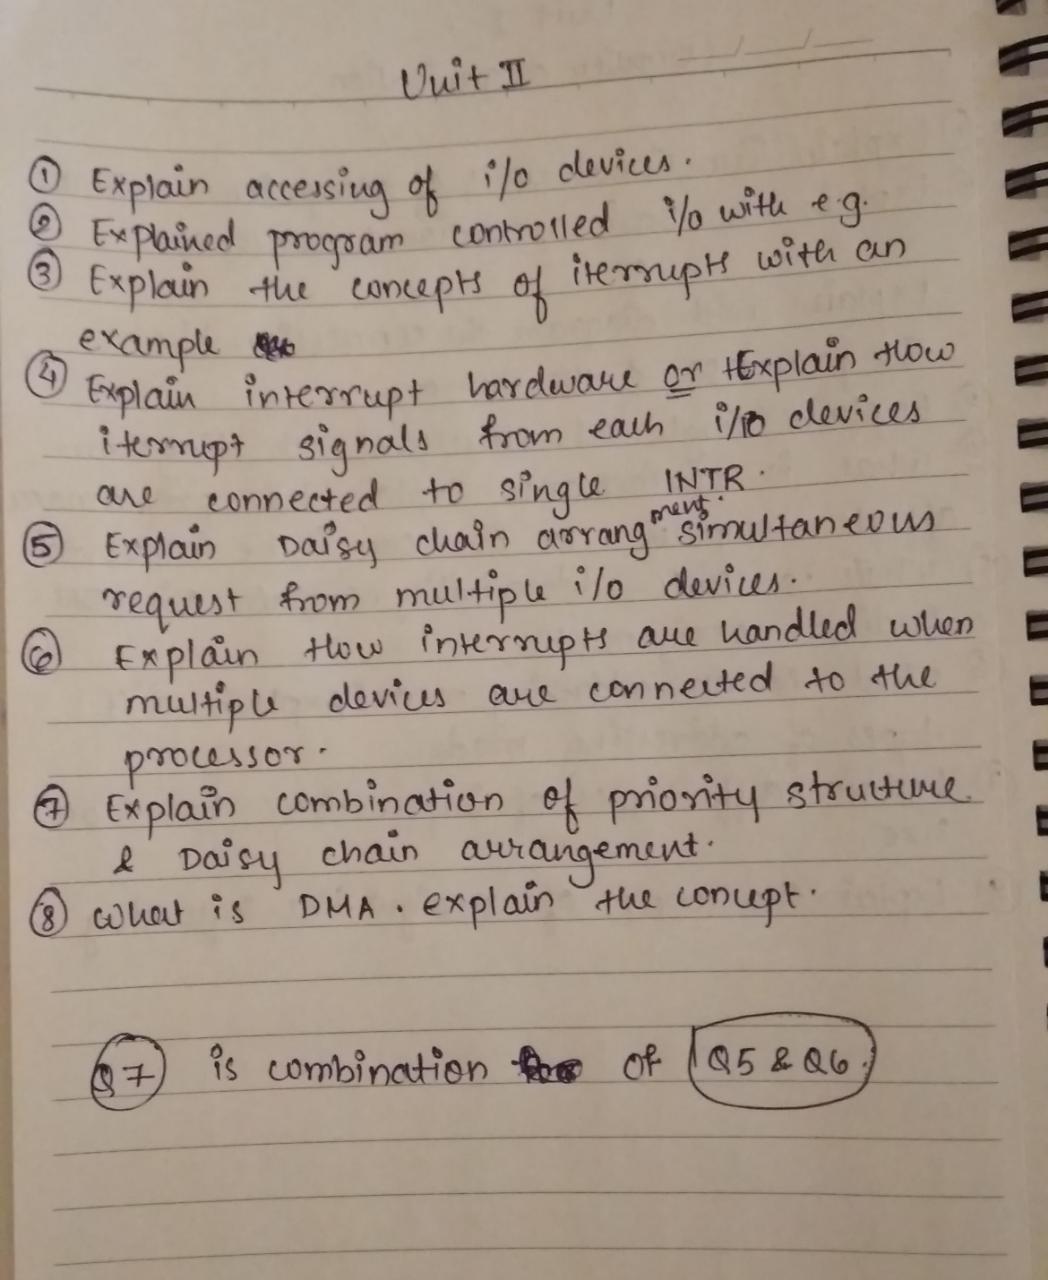 Unit II
① Explain accessing of i/o devices.
② Explained program controlled i/o with e.g.
③ Explain the concepts of iterrupts with an
example
④ Explain interrupt hardware or Explain How
iterrupt signals from each i/o devices
are connected to single INTR.
⑤ Explain Daisy chain arrangment simultaneous
request from multiple i/o devices.
⑥ Explain How interrupts are handled when
multiple devices are connected to the
processor.
⑦ Explain combination of priority structure
& Daisy chain arrangement.
⑧ What is DMA. explain the concept.
Q7 is combination of Q5 & Q6.